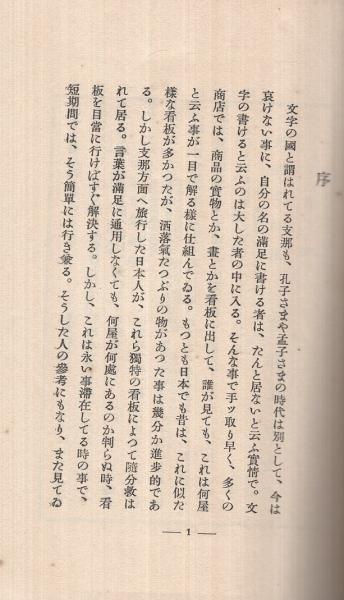 序
文字の國と謂はれてる支那も、孔子さまや孟子さまの時代は別として、今は
哀けない事に、自分の名の滿足に書ける者は、たんと居ないと云ふ實情で。文
字の書けると云ふのは大した者の中に入る。そんな事で手ッ取り早く、多くの
商店では、商品の實物とか、畫とかを看板に出して、誰が見ても、これは何屋
と云ふ事が一目で解る樣に仕組んでゐる。もつとも日本でも昔は、これに似た
樣な看板が多かつたが、洒落氣たつぷりの物があつた事は幾分か進步的であ
る。しかし支那方面へ旅行した日本人が、これら獨特の看板によつて隨分救は
れて居る。言葉が滿足に通用しなくても、何屋が何處にあるのか判らぬ時、看
板を目當に行けばすぐ解決する。しかし、これは永い事滯在してる時の事で、
短期間では、そう簡單には行き兼る。そうした人の參考にもなり、また見てゐ
— 1 —